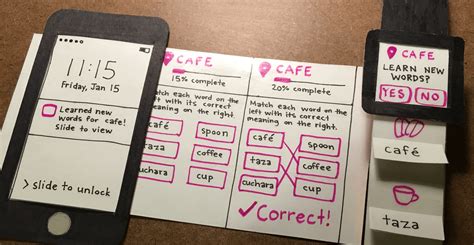 11:15
Friday, Jan 15
Learned new
words for cafe!
Slide to view
> slide to unlock
CAFE
15% complete
Match each word on the
left with its correct
meaning on the right.
café
spoon
taza
coffee
cuchara
cup
CAFE
20% complete
Match each word on the
left with its correct
meaning on the right.
café
spoon
taza
coffee
cuchara
cup
✓Correct!
CAFE
LEARN NEW
WORDS?
YES NO
café
taza